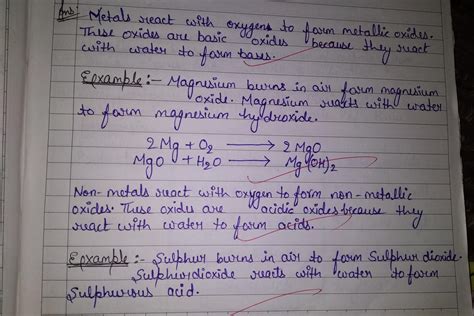 Ans:- Metals react with oxygens to form metallic oxides.
These oxides are basic oxides because they react
with water to form bases.
Example:- Magnesium burns in air form magnesium
oxide. Magnesium reacts with water
to form magnesium hydroxide.
2Mg + O2 → 2MgO
MgO + H2O → Mg(OH)2
Non-metals react with oxygen to form non-metallic
oxides. These oxides are acidic oxides because they
react with water to form acids.
Example:- Sulphur burns in air to form Sulphur dioxide.
Sulphurdioxide reacts with water to form
Sulphurous acid.